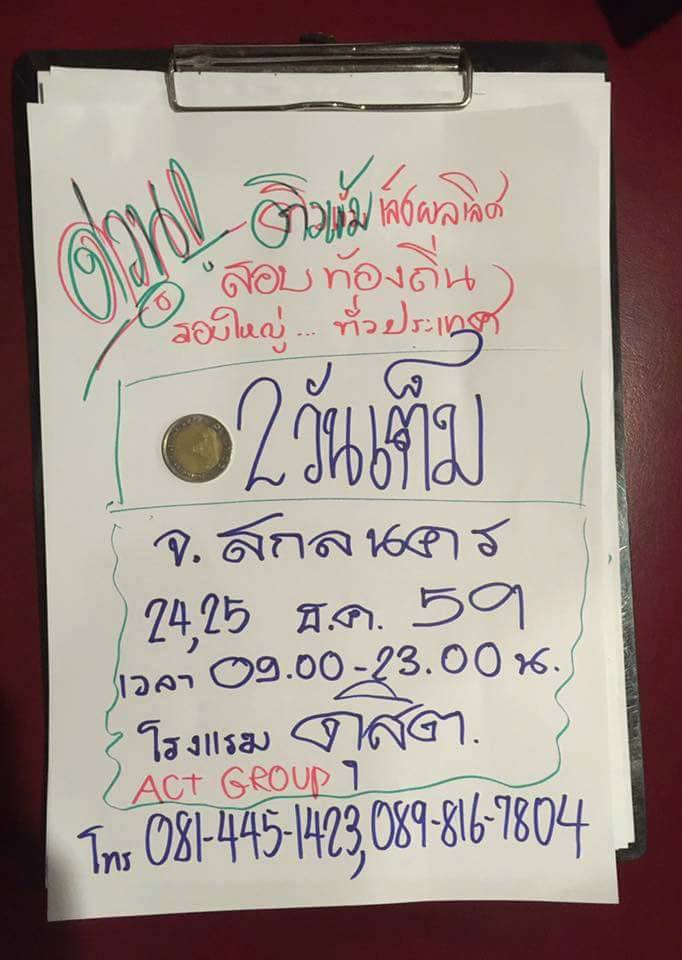 ด่วน! ติวเข้ม เล็งผลเลิศ
สอบท้องถิ่น
สอบใหญ่... ทั่วประเทศ
2 วันเต็ม
จ. สกลนคร
24,25 ธ.ค. 59
เวลา 09.00-23.00 น.
โรงแรม ดุสิต.
ACT GROUP
โทร 081-445-1423, 089-816-7804